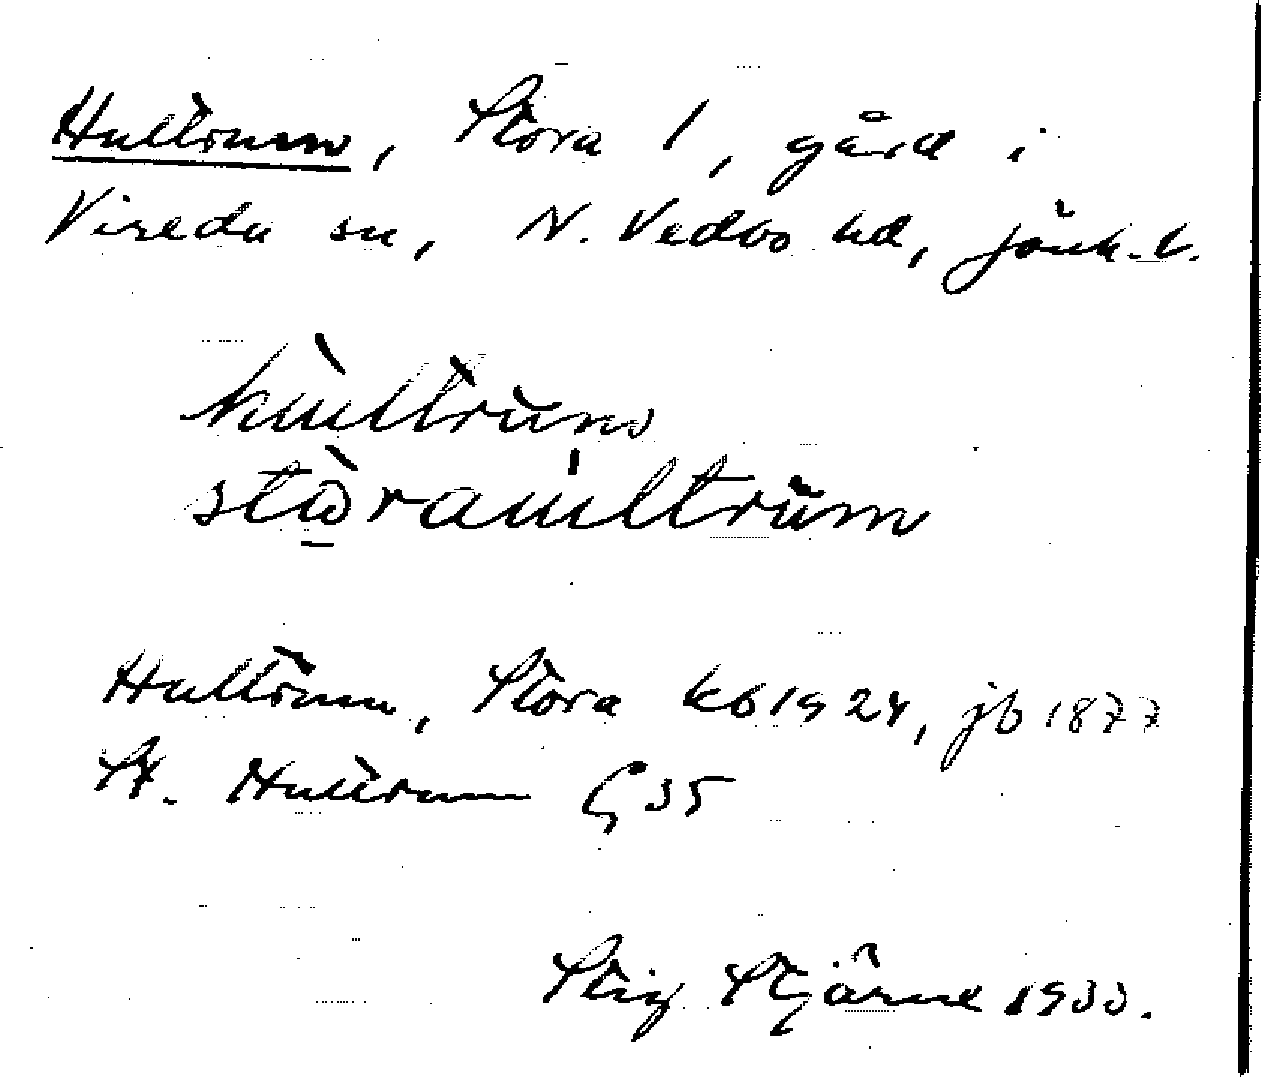 Hultrum, Stora 1, gård i
Vireda sn, N. Vedbo hd, Jönk. l.
hùltrum
stòraultrum
Hultrum, Stora kb 1924, jb 1877
St. Hultrum G 35
Stig Stjärne 1933.